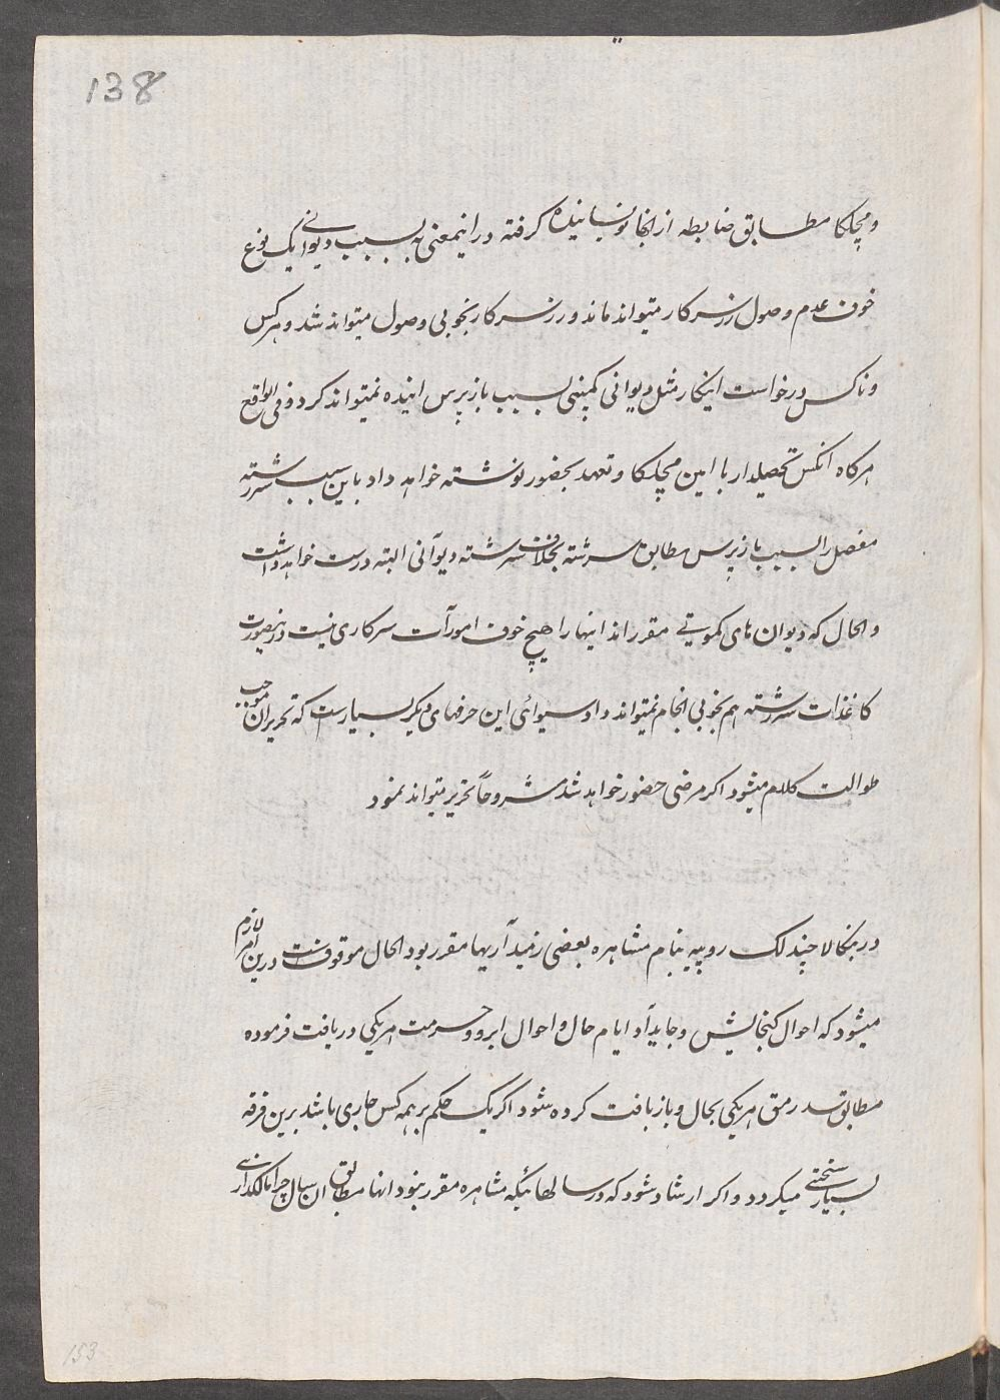 138
و مچلکا مطابق ضابطه از انجا نویسانیده گرفته درایمعنی به بسبب دیوانی یک نوع
خوف عدم وصول زر سرکار میتواند ماند و زر سرکار بخوبی وصول میتواند شد و هرکس
وناکس درخواست اینکار مثل دیوانی کمپنی بسبب بازپرس اینده نمیتواند کرد و فی الواقع
هرکاه انکس تحصیلدار با امین مچلکا و تعهد بحضور نوشته خواهد داد باین سبب سررشته
مفصل را بسبب بازپرس مطابق سرشته بخلاف سرشته دیوآنی البته درست خواهد داشت
والحال که دیوان های کموتی مقرر اند اینها را هیچ خوف امورآت سرکاری نیست درینصورت
کاغذات سررشته هم بخوبی انجام نمیتواند داد سیوائی این حرفهای دیکر بسیارست که تحریر ان موجب
طوالت کلام میشود اکر مرضی حضور خواهد شد مشروحاً تحریر میتواند نمود
در بنکالا چند لک روپیه بنام مشاهره بعضی زمیدآریها مقرر بود الحال موقوفست درین امر لازم
میشود که احوال کنجایش و جایدآد ایام حال و احوال ابرو و حرمت هریکی دریافت فرموده
مطابق سد رمق هریکی بحال و بازیافت کروه شود اکر یک حکم بر همه کس جاری باشد برین فرقه
بسیار سختی میکردد و اکر ارشاد شود که در سالهائیکه مشاهره مقرر نبود انها مطابق ان سال چرا مالکذاری
153